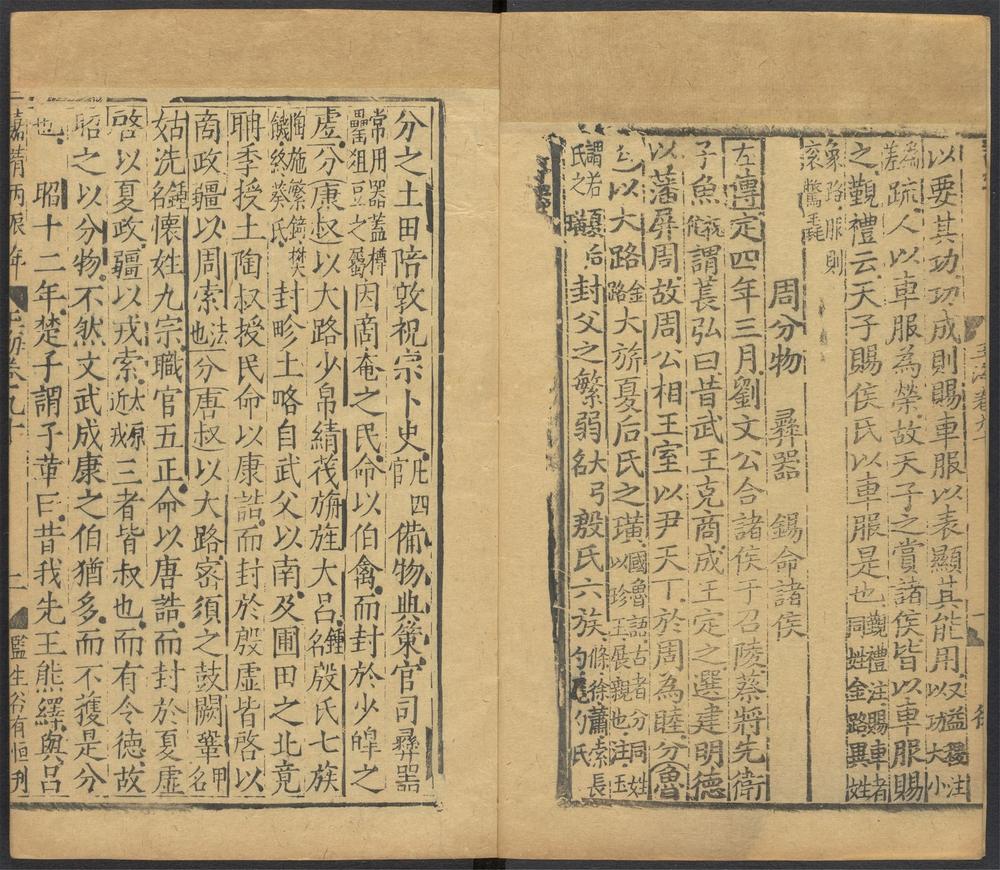 以要其功功成則賜車服以表顯其能用又益稷注以功大小
為差疏人以車服為榮故天子之賞諸侯皆以車服賜
之覲禮云天子賜侯氏以車服是也覲禮注賜車者同姓金路異姓
象路服則袞鷩毳
周分物 彝器 錫命諸侯
左傳定四年三月劉文公合諸侯于召陵蔡將先衛
子魚祝佗謂萇弘曰昔武王克商成王定之選建明德
以藩屏周故周公相王室以尹天下於周為睦分魯
公以大路金路大旂夏后氏之璜國魯語古者分同姓以珍玉展親也注玉
謂若夏后氏之璜封父之繁弱大弓名殷氏六族條徐蕭索長勺尾勺氏
分之土田陪敦祝宗卜史凡四官備物典策官司彝器
常用器蓋樽罍俎豆之屬因商奄之民命以伯禽而封於少皞之
虛分康叔以大路少帛綪茷旃旌大呂鍾名殷氏七族
陶施繁錡樊饑終葵氏封畛土略自武父以南及圃田之北竟
聃季授土陶叔授民命以康誥而封於殷虛皆啓以
商政疆以周索法也分唐叔以大路密須之鼓闕鞏甲名
姑洗鍾名懷姓九宗職官五正命以唐誥而封於夏虛
啓以夏政疆以戎索太原近戎三者皆叔也而有令德故
昭之以分物不然文武成康之伯猶多而不獲是分
也 昭十二年楚子謂子革曰昔我先王熊繹與呂
嘉靖丙辰年 玉海卷九十 二 監生谷有恒刊